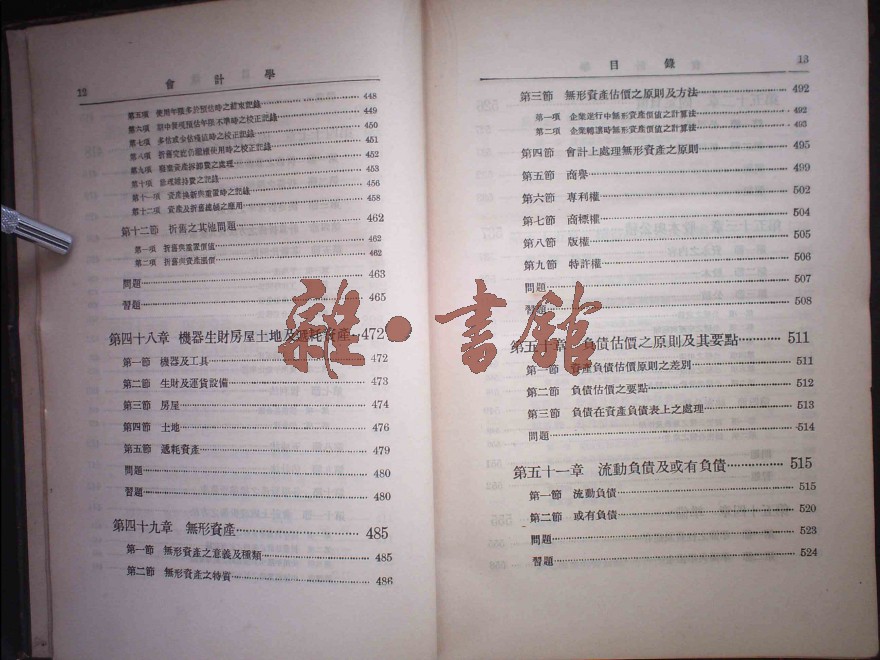 12 會計學
第五項 使用年限多於預估時之結束記錄 448
第六項 期中發現預估年限不準時之校正記錄 449
第七項 多估或少估殘值時之校正記錄 450
第八項 折舊完訖仍繼續使用時之校正記錄 451
第九項 廢棄資產拆卸費之處理 452
第十項 修理維持費之記錄 453
第十一項 資產換新與重置時之記錄 456
第十二項 資產及折舊總帳之應用 458
第十二節 折舊之其他問題 462
第一項 折舊與重置價值 462
第二項 折舊與資產漲價 462
問題 463
習題 465
第四十八章 機器生財房屋土地及遞耗資產 472
第一節 機器及工具 472
第二節 生財及運貨設備 473
第三節 房屋 474
第四節 土地 476
第五節 遞耗資產 479
問題 480
習題 480
第四十九章 無形資產 485
第一節 無形資產之意義及種類 485
第二節 無形資產之特質 486
目錄 13
第三節 無形資產估價之原則及方法 492
第一項 企業進行中無形資產價值之計算法 492
第二項 企業轉讓時無形資產價值之計算法 493
第四節 會計上處理無形資產之原則 495
第五節 商譽 499
第六節 專利權 502
第七節 商標權 504
第八節 版權 505
第九節 特許權 506
問題 507
習題 508
第五十章 負債估價之原則及其要點 511
第一節 資產負債估價原則之差別 511
第二節 負債估價之要點 512
第三節 負債在資產負債表上之處理 513
問題 514
第五十一章 流動負債及或有負債 515
第一節 流動負債 515
第二節 或有負債 520
問題 523
習題 524
雜·書館